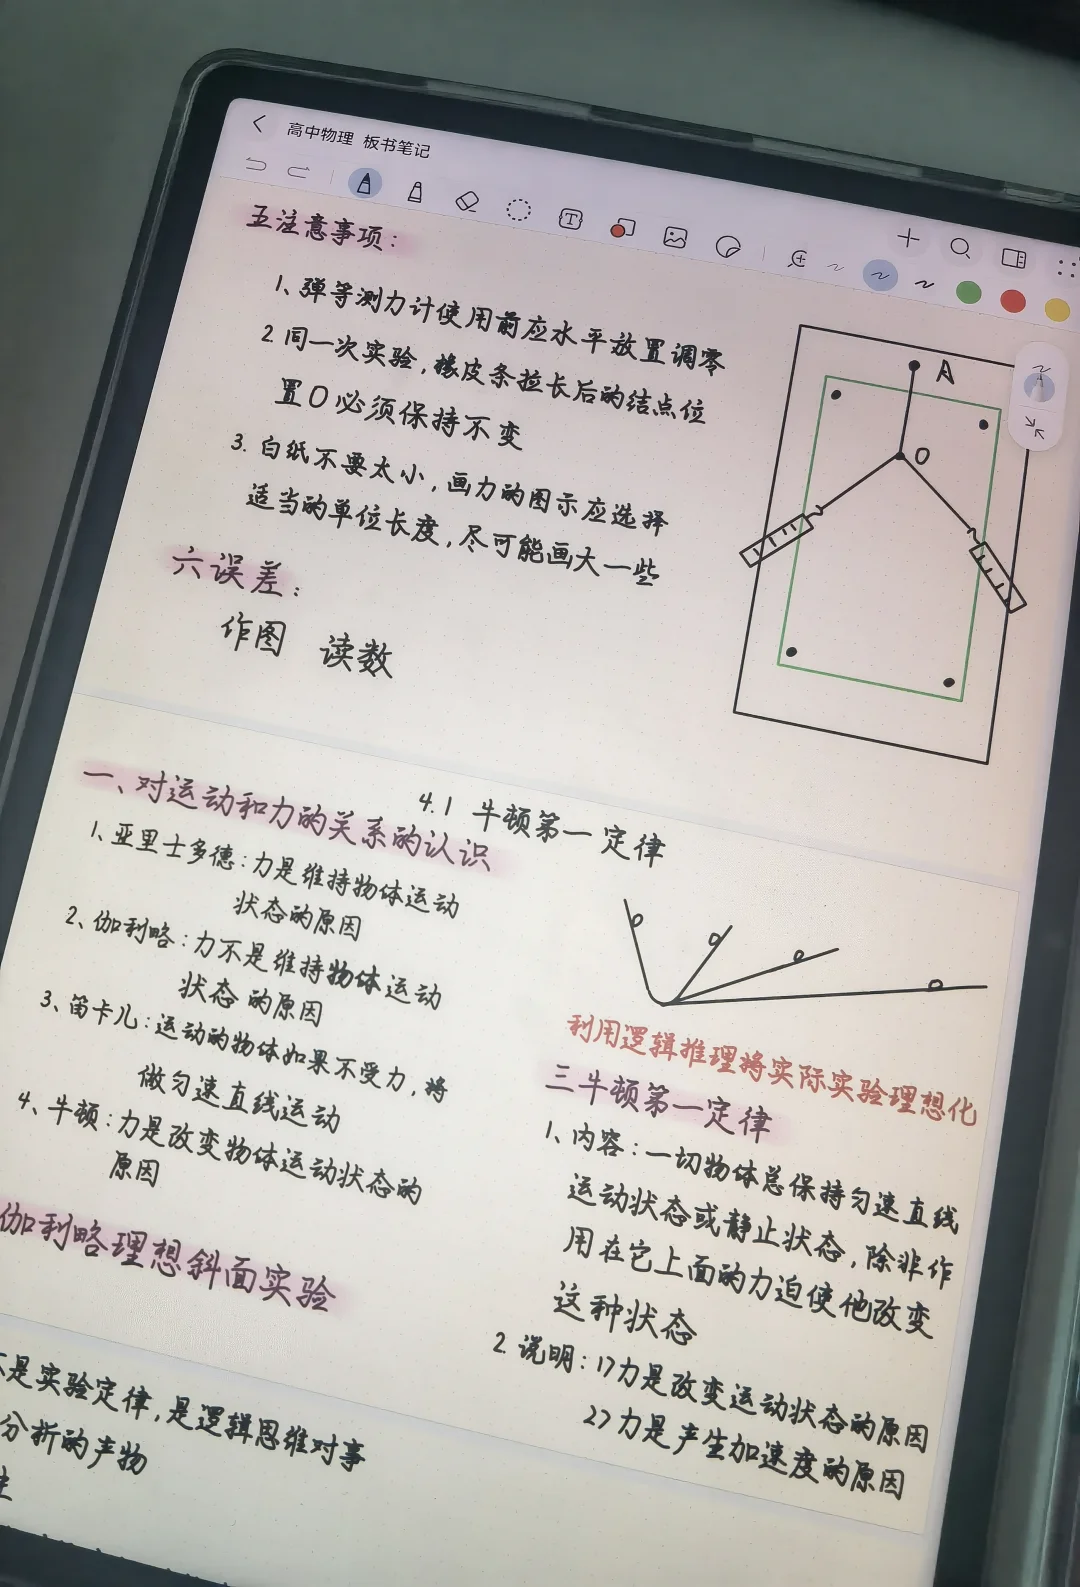 高中物理 板书笔记
五注意事项：
1、弹等测力计使用前应水平放置调零
2 同一次实验，橡皮条拉长后的结点位
置O必须保持不变
3. 白纸不要太小，画力的图示应选择
适当的单位长度，尽可能画大一些
六误差：
作图 读数
A
O
4.1 牛顿第一定律
一、对运动和力的关系的认识
1、亚里士多德：力是维持物体运动
状态的原因
2、伽利略：力不是维持物体运动
状态的原因
3、笛卡儿：运动的物体如果不受力，将
做匀速直线运动
4、牛顿：力是改变物体运动状态的
原因
伽利略理想斜面实验
利用逻辑推理将实际实验理想化
三牛顿第一定律
1、内容：一切物体总保持匀速直线
运动状态或静止状态，除非作
用在它上面的力迫使他改变
这种状态
2 说明：1>力是改变运动状态的原因
2>力是产生加速度的原因
是实验定律，是逻辑思维对事
分析的产物